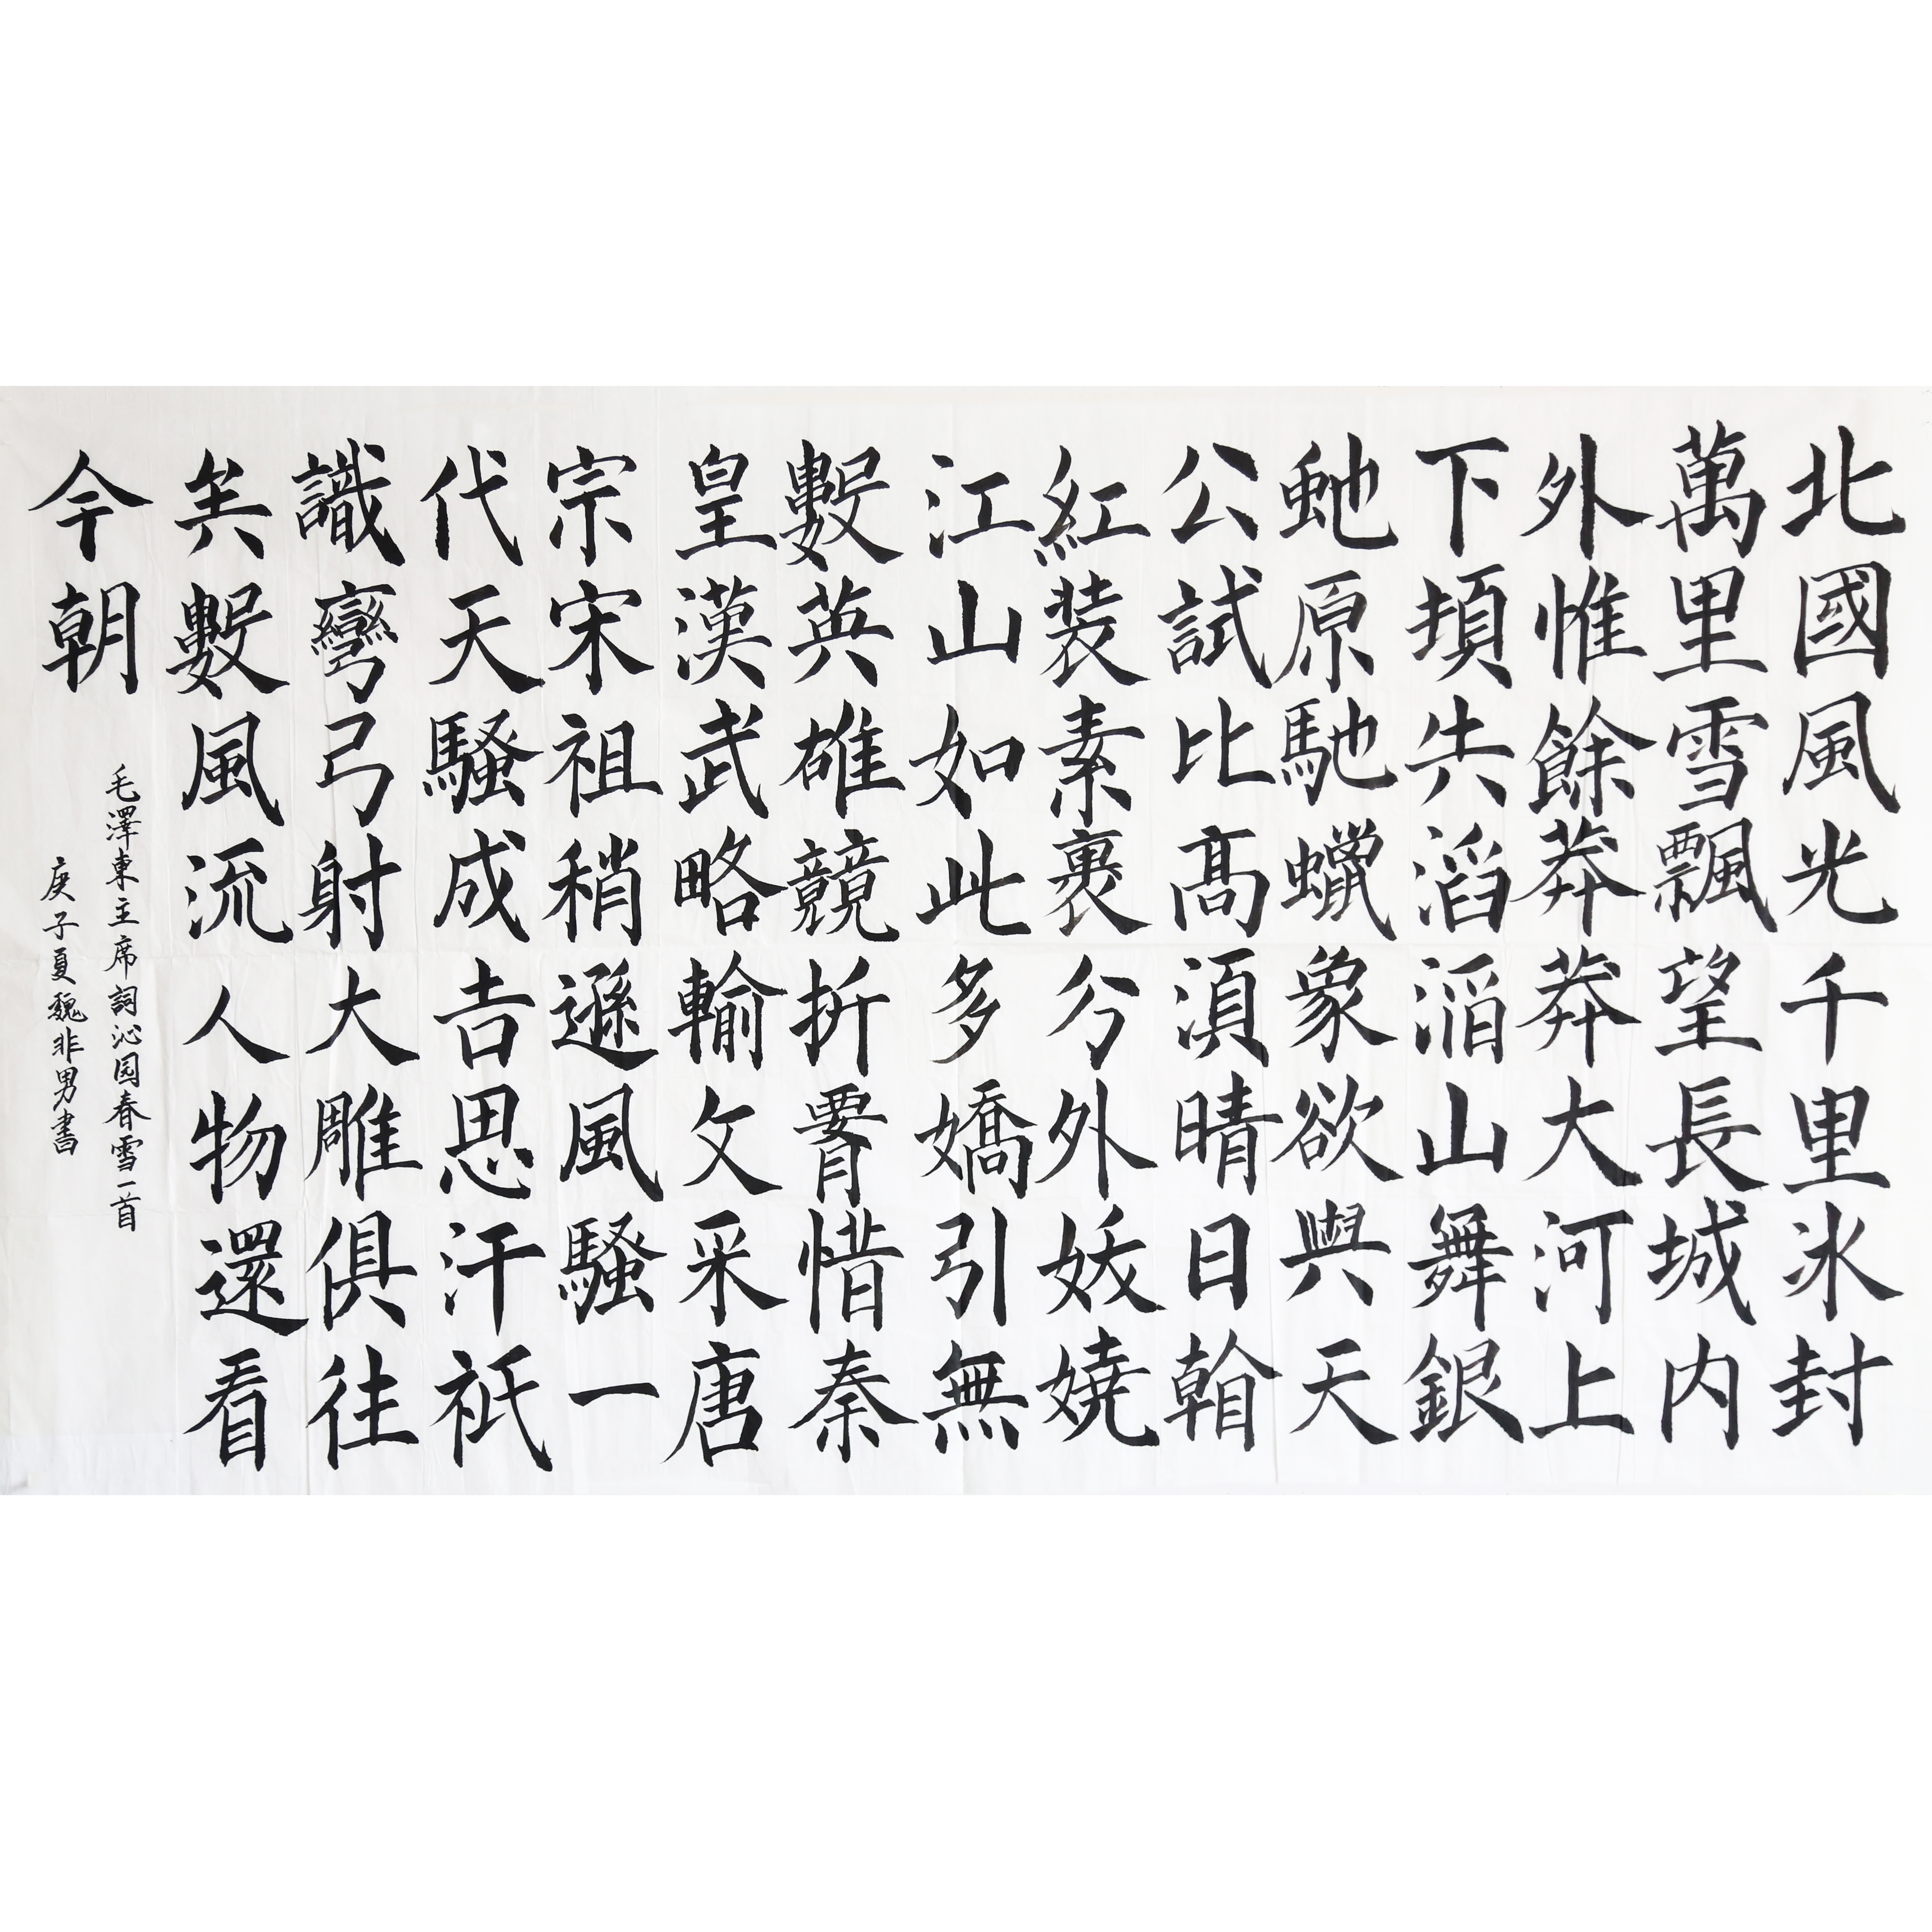 北國風光千里冰封
萬里雪飄望長城内
外惟餘莽莽大河上
下頓失滔滔山舞銀
虵原馳蠟象欲與天
公試比髙須晴日看
紅装素裹分外妖嬈
江山如此多嬌引無
數英雄競折腰惜秦
皇漢武略輸文采唐
宗宋祖稍遜風騷一
代天騷成吉思汗祇
識彎弓射大雕俱往
矣數風流人物還看
今朝
毛澤東主席詞沁园春雪一首
庚子夏魏非男書